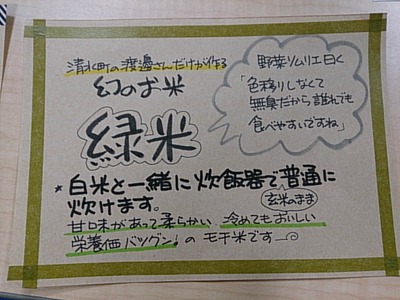 清水町の渡邊さんだけが作る
幻のお米
緑米
野菜ソムリエ曰く
「色移りしなくて
無臭だから誰れでも
食べやすいですね」
★白米と一緒に炊飯器で普通に
(玄米のまま)
炊けます。
甘口味があって柔らかい 冷めてもおいしい
栄養価バツグン!のモチ米です